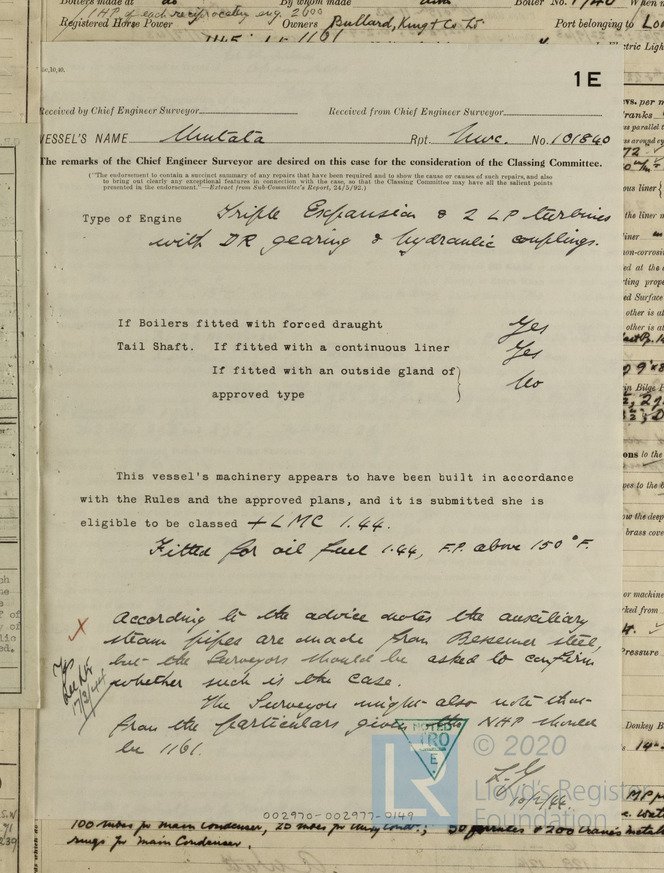 Boilers made at do By whom made Boiler No. 1740 When m
IHP of each reciprocating eng. 2600
Registered Horse Power Owners Bullard, King & Co Ltd Port belonging to Lo
1161
Electric Ligh
1E
Received by Chief Engineer Surveyor Received from Chief Engineer Surveyor
VESSEL'S NAME Umtata Rpt. Nwc. No. 101840
The remarks of the Chief Engineer Surveyor are desired on this case for the consideration of the Classing Committee.
("The endorsement to contain a succinct summary of any repairs that have been required and to show the cause or causes of such repairs, and also
to bring out clearly any exceptional features in connection with the case, so that the Classing Committee may have all the salient points
presented in the endorsement."—Extract from Sub-Committee's Report, 24/5/92.)
Type of Engine Triple Expansion & 2 LP turbines
with DR gearing & hydraulic couplings.
If Boilers fitted with forced draught Yes
Tail Shaft. If fitted with a continuous liner Yes
If fitted with an outside gland of
approved type No
This vessel's machinery appears to have been built in accordance
with the Rules and the approved plans, and it is submitted she is
eligible to be classed + LMC 1.44.
Fitted for oil fuel 1.44, F.P. above 150°F.
According to the advice notes the auxiliary
steam pipes are made from Bessemer steel,
but the Surveyors should be asked to confirm
whether such is the case.
The Surveyors might also note that
from the particulars given the NHP should
be 1161.
17/2/44
NOTED
TRO
E
10/2/44.
© 2020
LR
Lloyd's Register
Foundation
002970-002977-0149
100 tubes for main condenser, 20 tubes for Aux Cond.; 50 ferrules & 200
rings for Main Condenser.